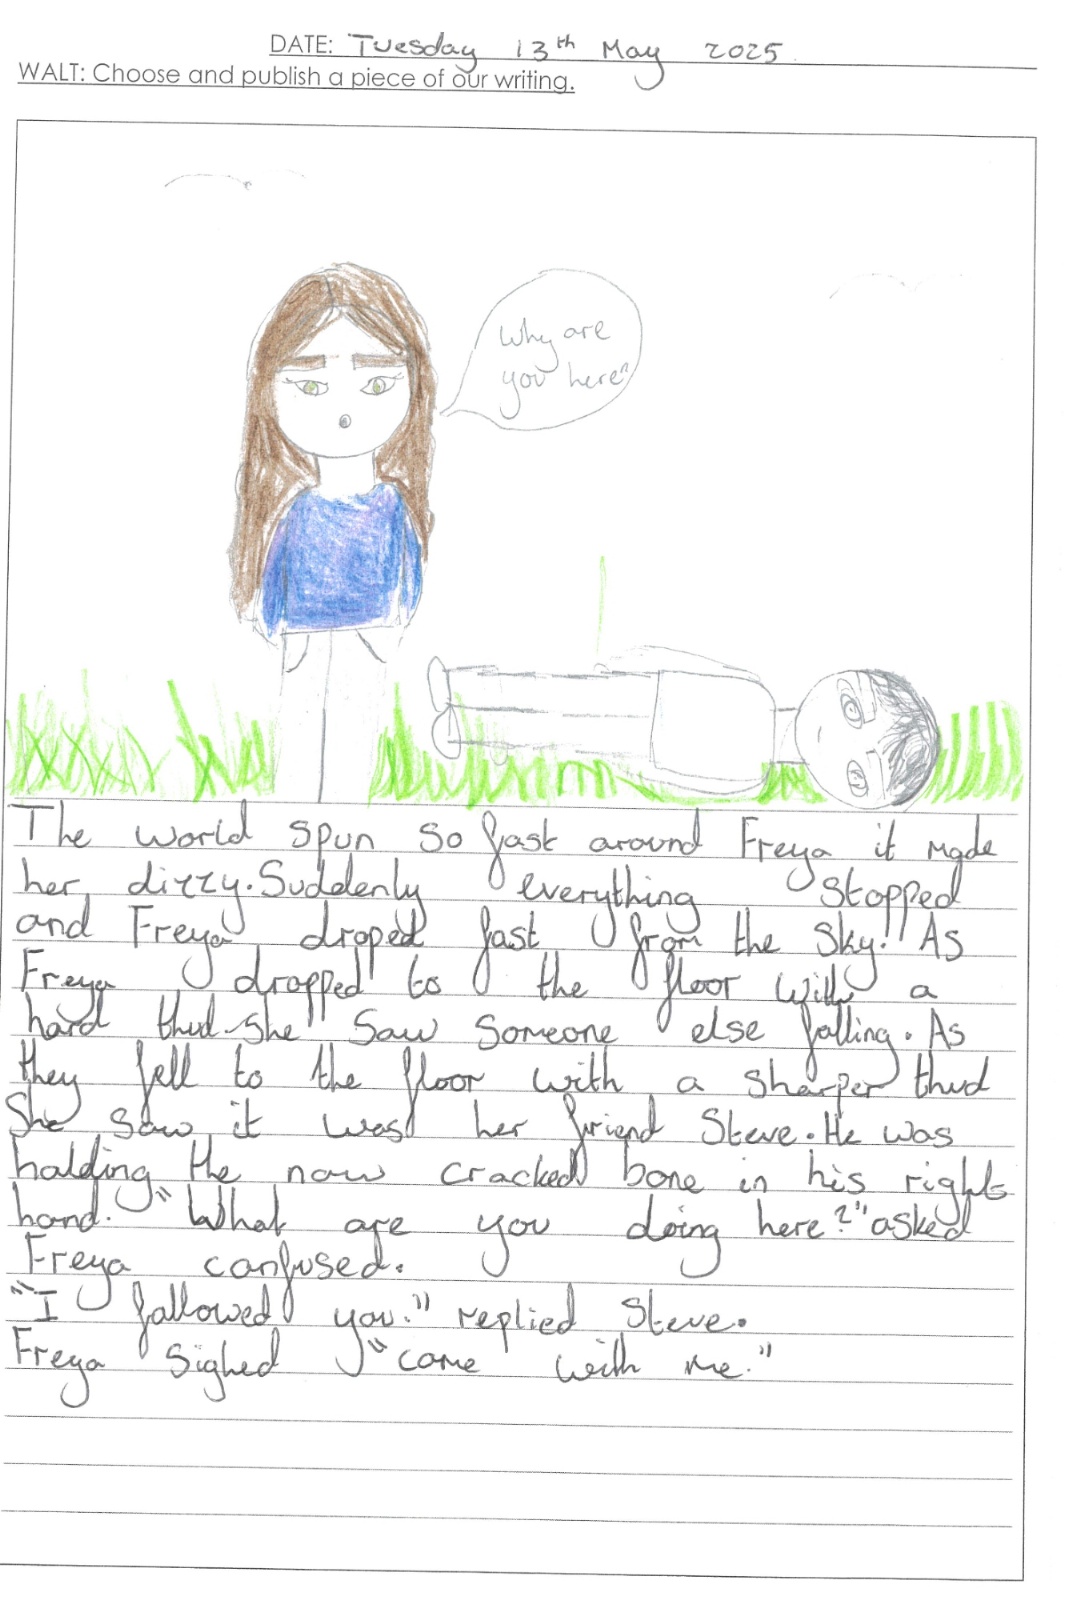 DATE: Tuesday 13th May 2025
WALT: Choose and publish a piece of our writing.
Why are
you here?
The world spun so fast around Freya it made
her dizzy. Suddenly everything stopped
and Freya droped fast from the sky. As
Freya dropped to the floor with a
hard thud she saw someone else falling. As
they fell to the floor with a sharper thud
She saw it was her friend Steve. He was
holding the now cracked bone in his right
hand. "What are you doing here?" asked
Freya confused.
"I followed you." replied Steve.
Freya sighed "come with me."